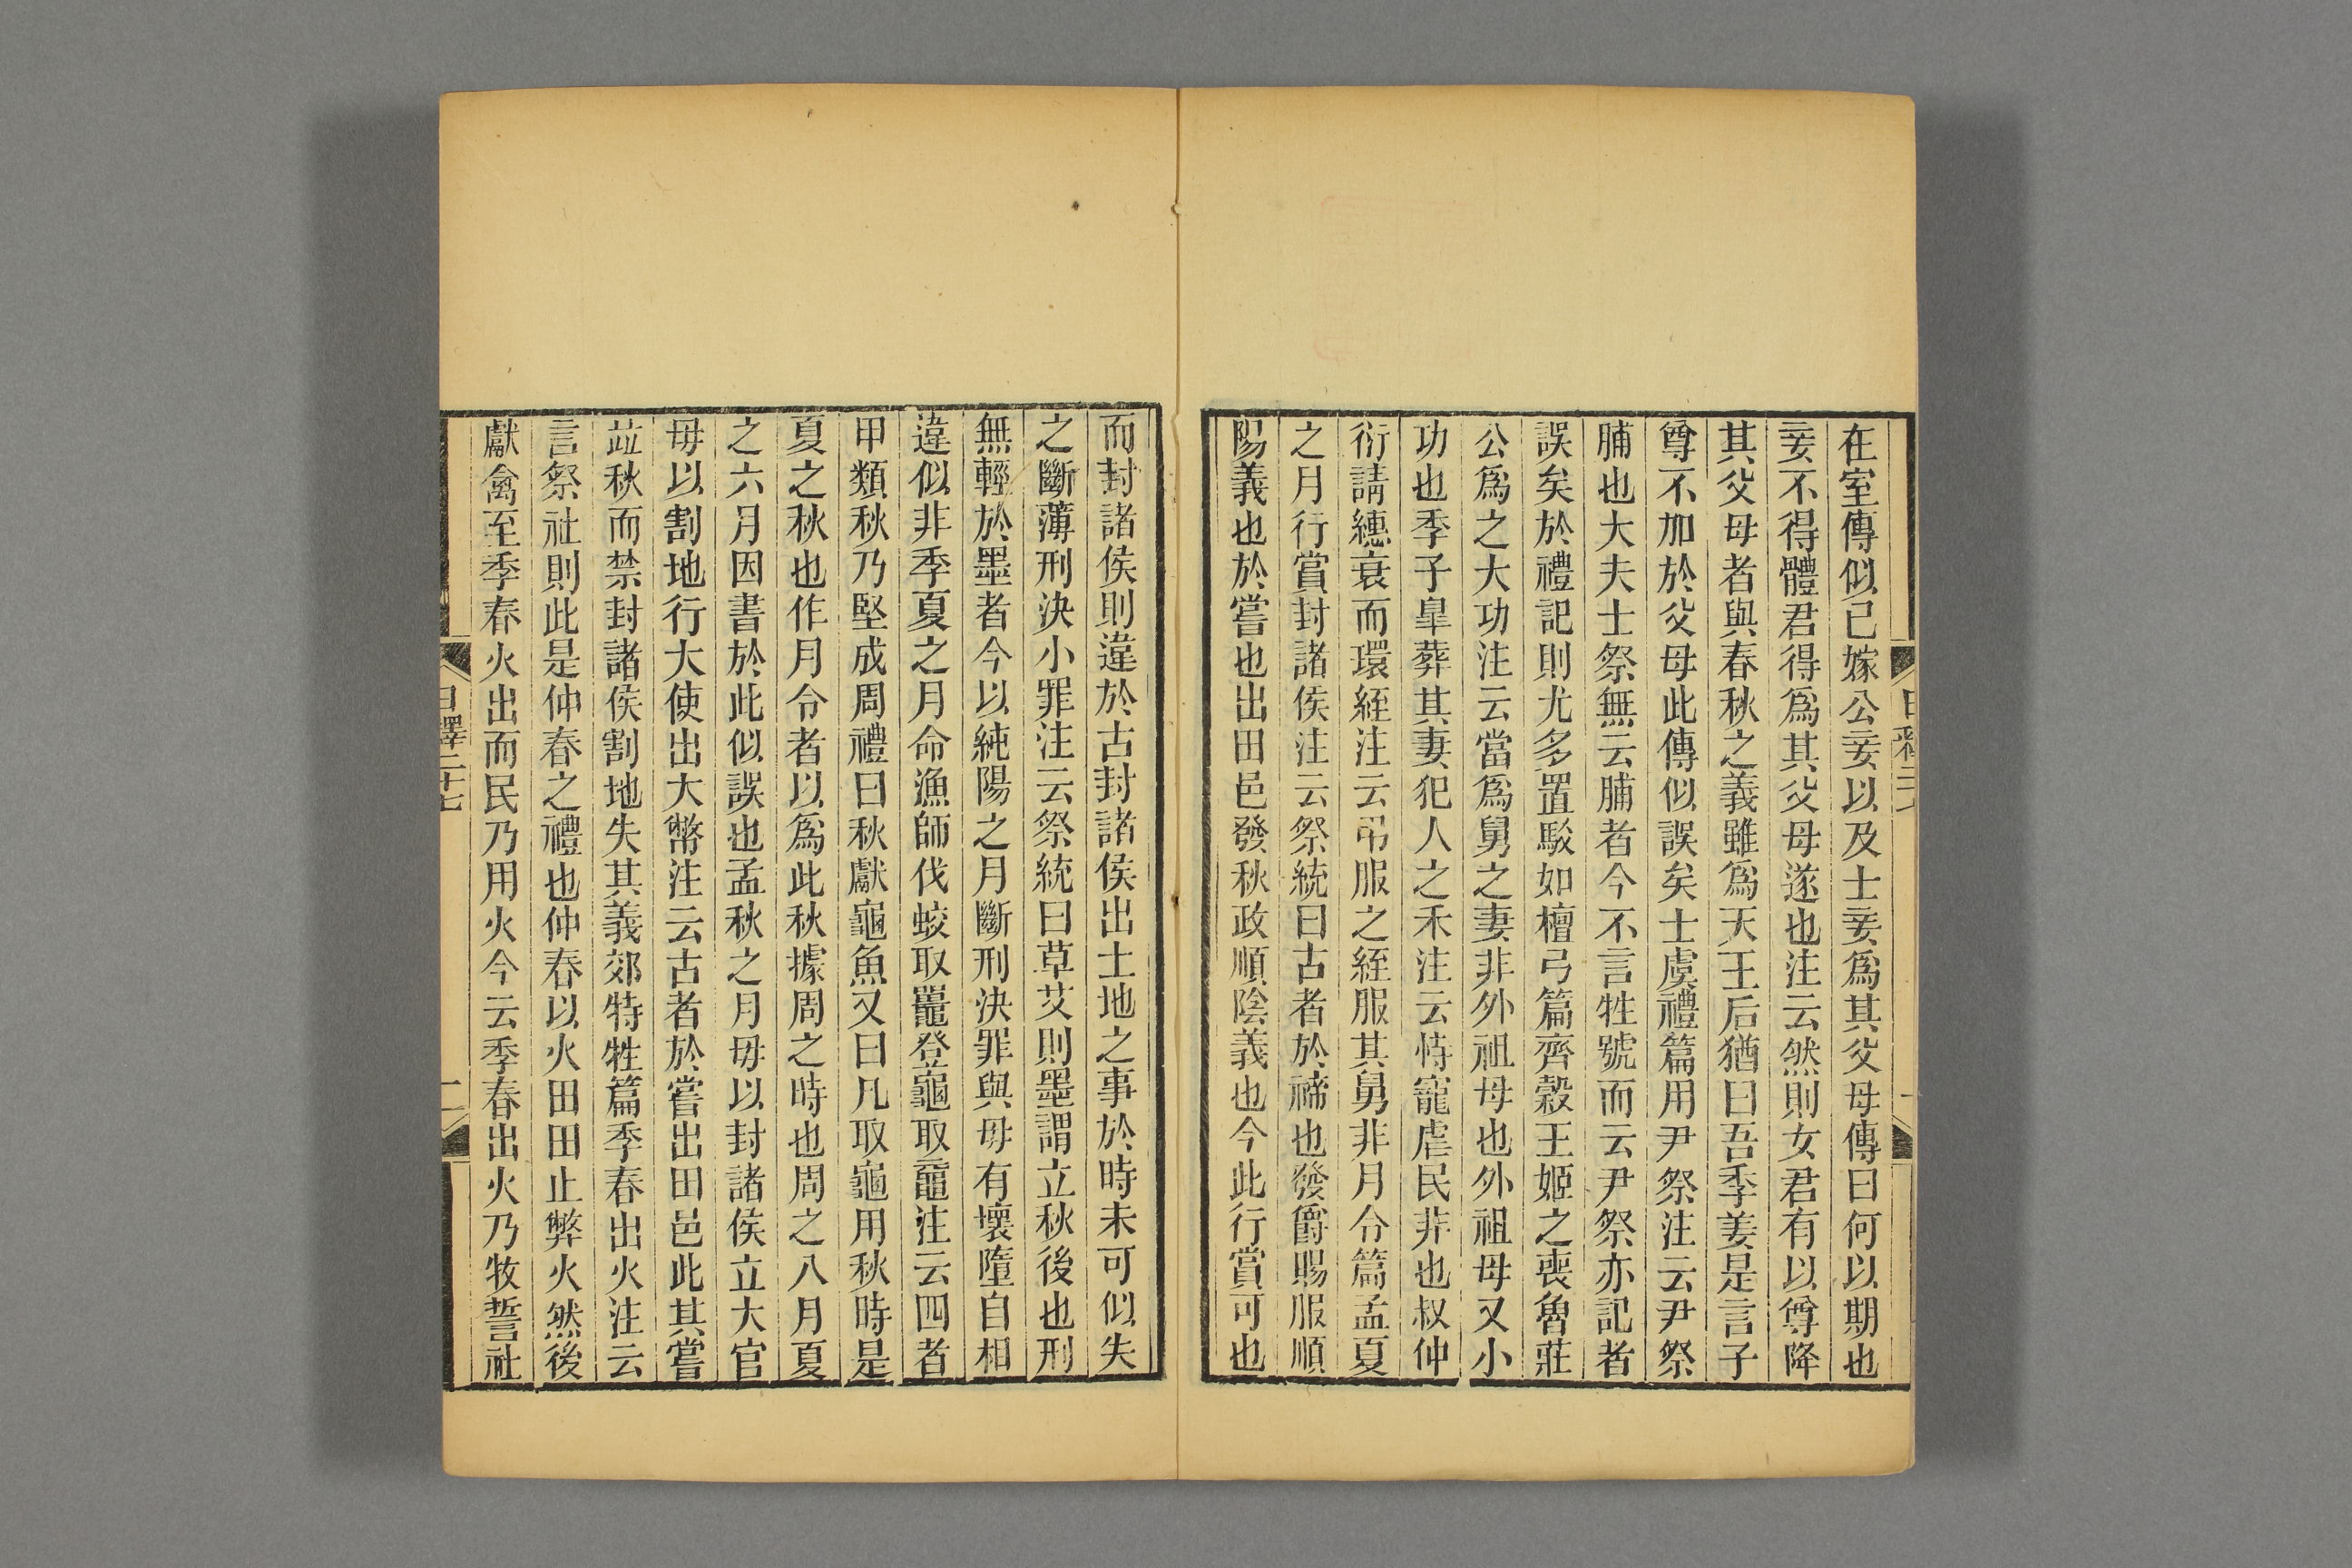 在室傳似已嫁公妾以及士妾爲其父母傳曰何以期也
妾不得體君得爲其父母遂也注云然則女君有以尊降
其父母者與春秋之義雖爲天王后猶曰吾季姜是言子
尊不加於父母此傳似誤矣士虞禮篇用尹祭注云尹祭
脯也大夫士祭無云脯者今不言牲號而云尹祭亦記者
誤矣於禮記則尤多置駁如檀弓篇齊穀王姬之喪魯莊
公爲之大功注云當爲舅之妻非外祖母也外祖母又小
功也季子皐葬其妻犯人之禾注云恃寵虐民非也叔仲
衍請繐衰而環絰注云弔服之絰服其舅非月令篇孟夏
之月行賞封諸侯注云祭統曰古者於禘也發爵賜服順
陽義也於嘗也出田邑發秋政順陰義也今此行賞可也
而封諸侯則違於古封諸侯出土地之事於時未可似失
之斷薄刑決小罪注云祭統曰草艾則墨謂立秋後也刑
無輕於墨者今以純陽之月斷刑決罪與毋有壞墮自相
違似非季夏之月命漁師伐蛟取鼉登龜取黿注云四者
甲類秋乃堅成周禮曰秋獻龜魚又曰凡取龜用秋時是
夏之秋也作月令者以爲此秋據周之時也周之八月夏
之六月因書於此似誤也孟秋之月毋以封諸侯立大官
毋以割地行大使出大幣注云古者於嘗出田邑此其嘗
竝秋而禁封諸侯割地失其義郊特牲篇季春出火注云
言祭社則此是仲春之禮也仲春以火田田止弊火然後
獻禽至季春火出而民乃用火今云季春出火乃牧誓社
日釋二十七
二